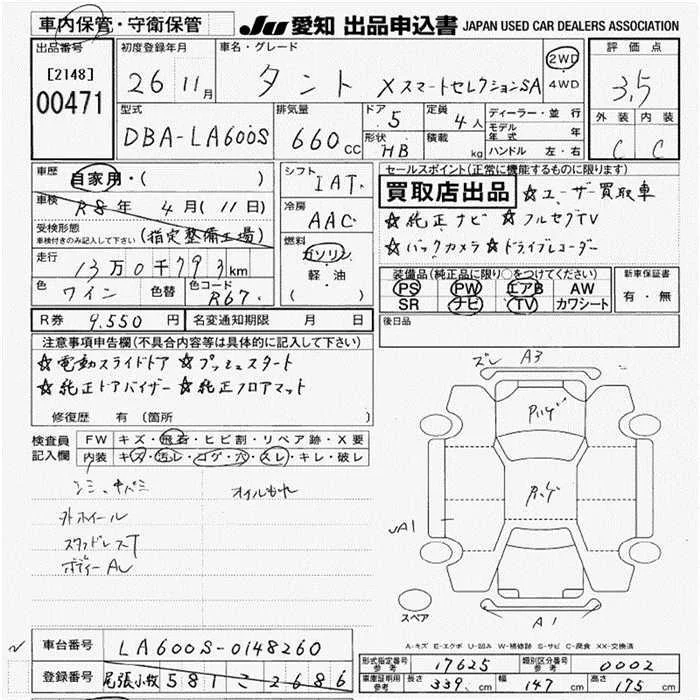 車内保管・守衛保管
JU 愛知 出品申込書 JAPAN USED CAR DEALERS ASSOCIATION
出品番号 [2148] 00471
初度登録年月 26 11月
車名・グレード タント XスマートセレクションSA
2WD・4WD
評価点 3.5
外装 C 内装 C
型式 DBA-LA600S
排気量 660 CC
ドア 5
形状 HB
定員 4人
積載 kg
ディーラー・並行
モデル年式 年
ハンドル 左・右
車歴 自家用・( )
車検 R8年 4月(11日)
受検形態 車検付きのみ記入して下さい (指定整備工場)
走行 13万0千793km
色 ワイン 色替 色コード R67
シフト IAT
冷房 AAC
燃料 ガソリン・軽・油 ( )
セールスポイント(正常に機能するものに限ります)
買取店出品 ☆ユーザー買取車
☆純正ナビ ☆フルセグTV
☆バックカメラ ☆ドライブレコーダー
装備品(純正品に限り○をつけてください)
PS PW エアB AW
SR ナビ TV カワシート
新車保証書 有・無
R券 9.550 円 名変通知期限 月 日
後日品
注意事項申告欄(不具合内容等は具体的に記入して下さい)
☆電動スライドドア ☆プッシュスタート
☆純正ドアバイザー ☆純正フロアマット
修復歴 有 (箇所 )
検査員記入欄
FW キズ・飛石・ヒビ割・リペア跡・X要
内装 キズ・汚レ・コゲ・穴・スレ・キレ・破レ
オイルもれ
外ホイール
スタッドレスT
ボディーAU
ズレ A3
ハゲ
JA1
スペア
A1
A-キズ E-エクボ U-凹み W-補修跡 S-サビ C-腐食 XX-交換済
車台番号 LA600S-0148260
登録番号 尾張小牧 581 こ 2686
形式指定番号 参考 17625
類別区分番号 参考 0002
車庫証明用 参考 長さ 339 cm 幅 147 cm 高さ 175 cm